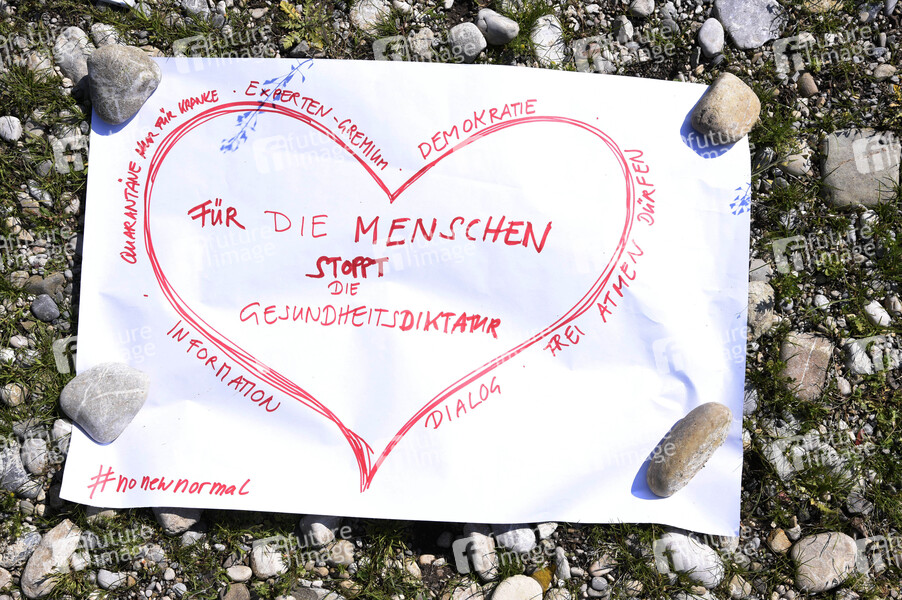 QUARANTÄNE NUR FÜR KRANKE · EXPERTEN-GREMIUM · DEMOKRATIE
FREI ATMEN DÜRFEN
FÜR DIE MENSCHEN
STOPPT
DIE
GESUNDHEITSDIKTATUR
INFORMATION
DIALOG ·
#nonewnormal
future image